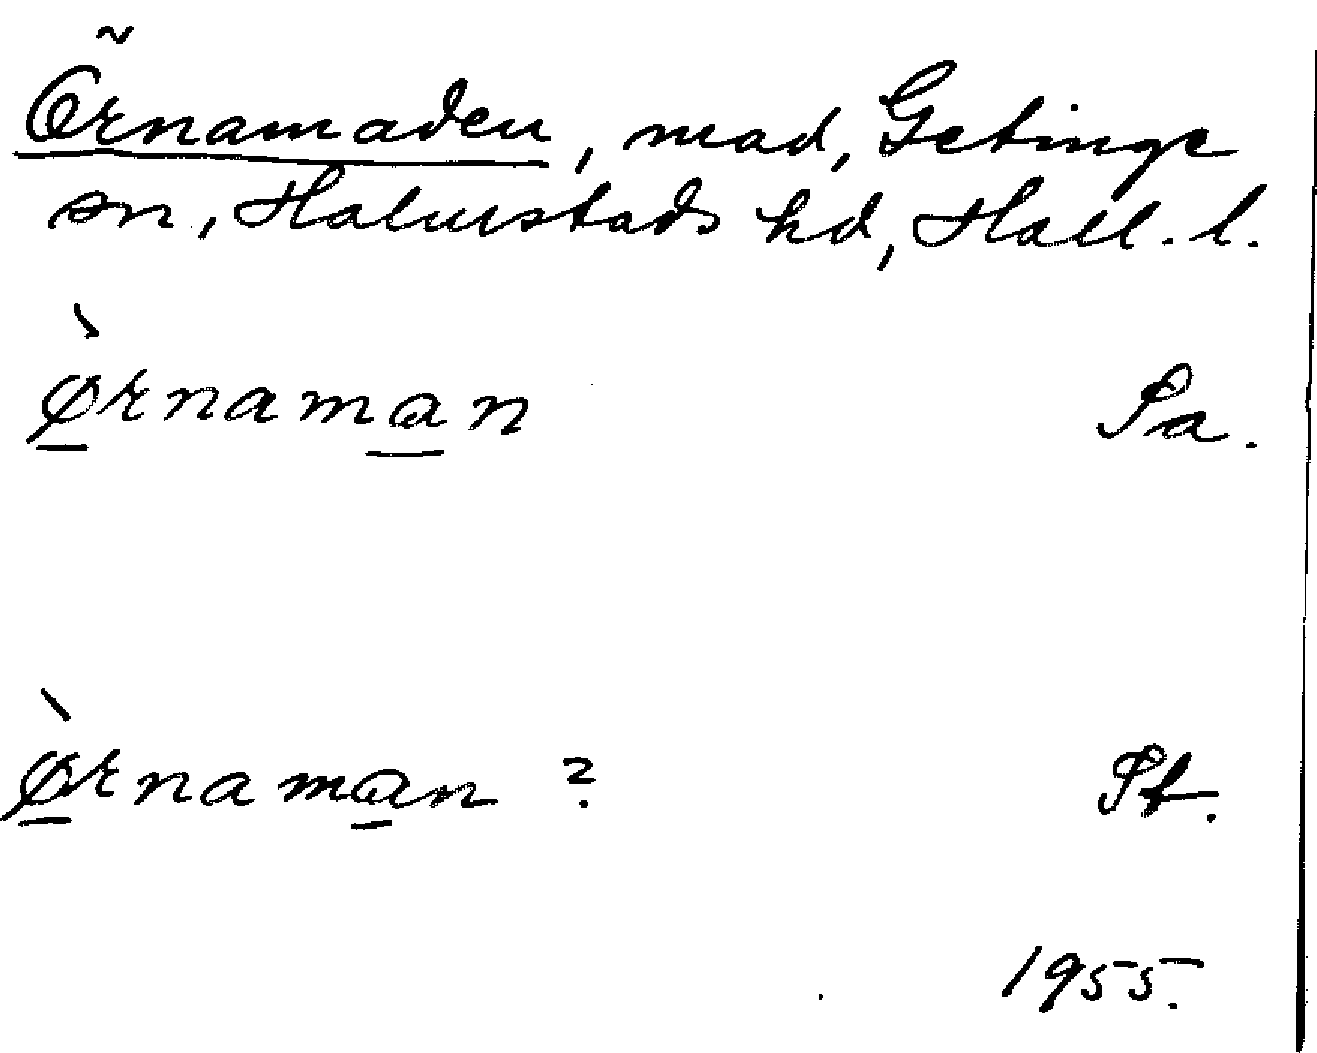 Örnamaden, mad, Getinge
sn, Halmstads hd, Hall. l.
Ø̀rnaman Pa.
Ø̀rnaman ? Pt.
1955.